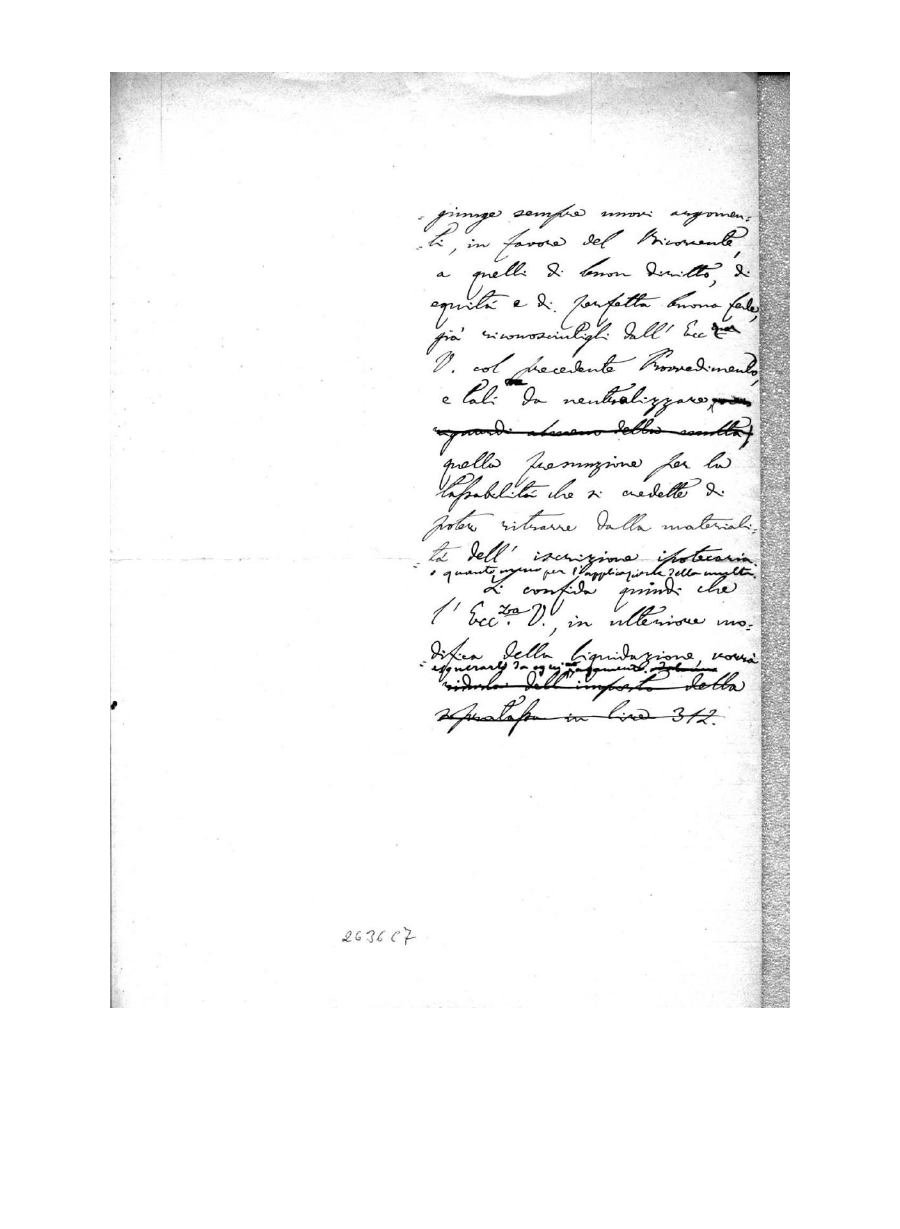 =giunge sempre nuovi argomen=
=ti, in favore del Ricorrente,
a quelli di buon diritto, di
equità e di perfetta buona fede,
già riconosciutigli dall' Ecc.za
V. col precedente Provvedimento,
e tali da neutralizzare,
riguardi almeno della multa,
quella presunzione per la
tassabilità che si credette di
poter ritrarre dalla materiali=
=tà dell' iscrizione ipotecaria.
o quanto meno per l'applicazione della multa.
Si confida quindi che
l' Ecc.za V., in ulteriore mo=
=difica della liquidazione, vorrà
esonerarlo da ogni pagamento.
ridurla dell'importo della
sopratassa in lire 312.
2636 C7